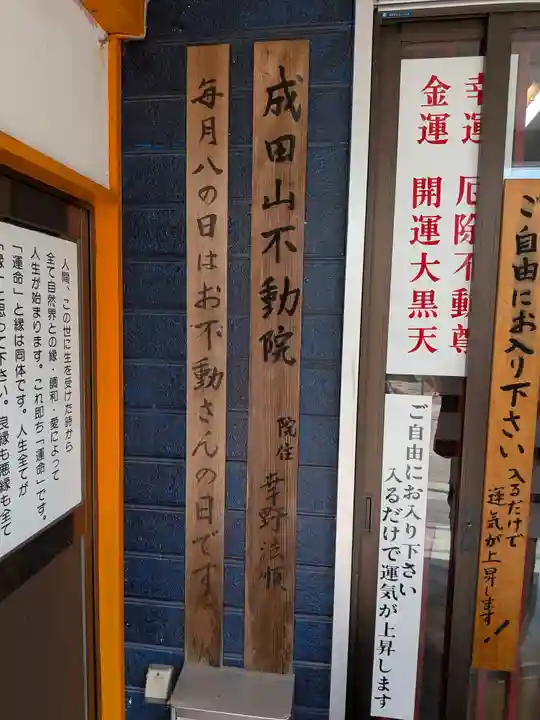 ご自由にお入り下さい
入るだけで
運気が上昇します!
幸運 厄除不動尊
金運 開運大黒天
ご自由にお入り下さい
入るだけで運気が上昇します
成田山不動院
院住
毎月八の日はお不動さんの日です
人間、この世に生を受けた時から
全て自然界との縁・調和・愛によって
人生が始まります。これ即ち「運命」です。
「運命」と縁は同体です。人生全てが
「縁」と思って下さい。良縁も悪縁も全て